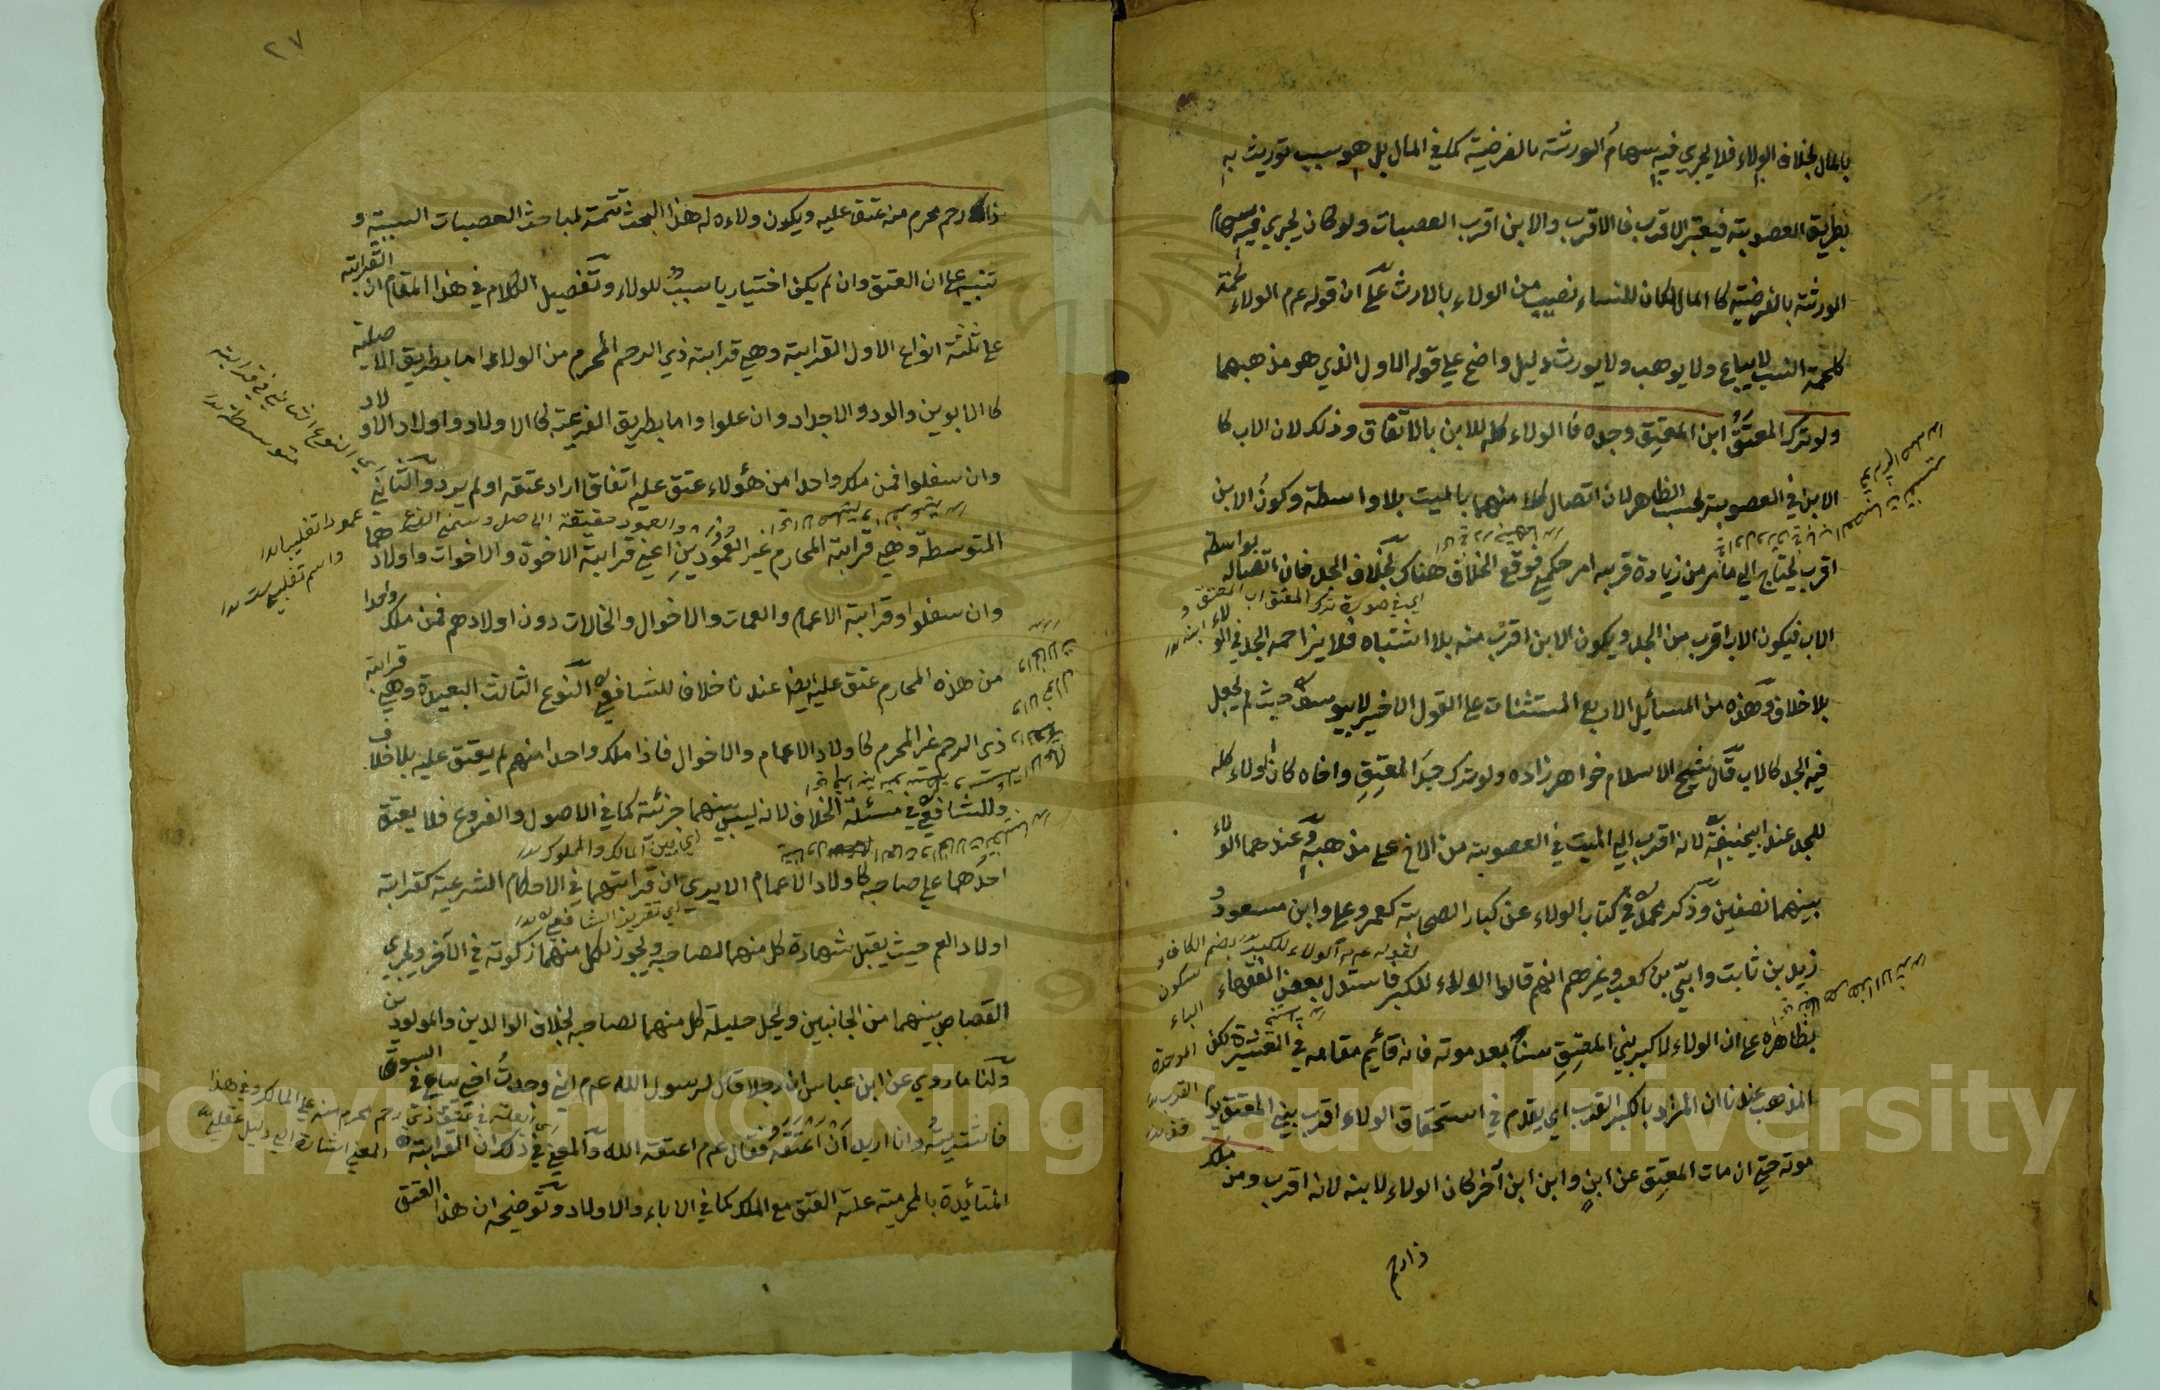 بالمال بخلاف الولاء فلا يجري فيه سهام الورثة بالفرضية كما في المال بل هو سبب توريث به
بطريق العصوبة فيعتبر الاقرب فالاقرب والابن اقرب العصبات ولو كان يجري فيه سهام
الورثة بالفرضية كالمال لكان للنساء نصيب من الولاء بالارث على ان قوله عم الولاء لحمة
كلحمة النسب لا يباع ولا يوهب ولا يورث دليل واضح على قوله الاول الذي هو مذهبهما
ولو ترك المعتق ابن المعتق وجده فالولاء كله للابن بالاتفاق وذلك لان الاب كا
الابن في العصوبة بحسب الظاهر لان اتصال كل منهما بالميت بلا واسطة وكون الابن
اقرب يحتاج الى ما مر من زيادة قربه امر حكمي فوقع الخلاف هناك بخلاف الجد فان اتصاله بواسطة
اي في صورة ترك المعتق اب المعتق و ابنه
الاب فيكون الاب اقرب من الجد ويكون الابن اقرب منه بلا اشتباه فلا يزاحمه الجد في الولاء
بلا خلاف وهذه من المسائل الاربع المستثنات على القول الاخير لابي يوسف حيث لم يجعل
فيه الجد كالاب قال شيخ الاسلام خواهر زاده ولو ترك جد المعتق واخاه كان الولاء كله
للجد عند ابي حنيفة لانه اقرب الى الميت في العصوبة من الاخ على مذهبه وعندهما الولاء
بينهما نصفين وذكر محمد في كتاب الولاء عن كبار الصحابة كعمر وعلي وابن مسعود و
زيد بن ثابت وابي بن كعب وغيرهم انهم قالوا الولاء للكبر فاستدل بعض الفقهاء
لقوله عم الولاء للكبر بضم الكاف و سكون الباء الموحدة
بظاهره على ان الولاء لاكبر بني المعتق سنا بعد موته فانه قائم مقامه في العشيرة لكن
المذهب عندنا ان المراد بالكبر القرب اي يقدم في استحقاق الولاء اقرب بني المعتق يوم
موته حتى ان مات المعتق عن ابن وابن ابن آخر كان الولاء لابنه لانه اقرب ومن ملك
ذا رحم
٢٧
ذا رحم محرم منه عتق عليه ويكون ولاءه له هذا البحث تتمة لمباحث العصبات السببية و
تنبيه على ان العتق وان لم يكن اختياريا سبب للولاء وتفصيل الكلام في هذا المقام ان القرابة
على ثلثة انواع الاول القرابة وهي قرابة ذي الرحم المحرم من الولاء اما بطريق الاصلية
كالابوين والاجداد وان علوا واما بطريق الفرعية كالاولاد واولاد الاولاد
وان سفلوا فمن ملك واحدا من هؤلاء عتق عليه اتفاقا اراد عتقه او لم يرد والثاني
اي النوع الثاني في قرابة متوسطة
المتوسطة وهي قرابة المحارم غير العمودين اعني قرابة الاخوة والاخوات واولادهما
وان سفلوا وقرابة الاعمام والعمات والاخوال والخالات دون اولادهم فمن ملك واحدا
من هذه المحارم عتق عليه ايضا عندنا خلافا للشافعي النوع الثالث البعيدة وهي قرابة
ذي الرحم غير المحرم كاولاد الاعمام والاخوال فاذا ملك واحدا منهم لم يعتق عليه بلا خلاف
وللشافعي في مسئلة الخلاف انه ليس بينهما جزئية كما في الاصول والفروع فلا يعتق
اي بين المالك والمملوك
احدهما على صاحبه كاولاد الاعمام الا يرى ان قرابتهما في الاحكام الشرعية كقرابة
اولاد العم حيث يقبل شهادة كل منهما لصاحبه ويجوز لكل منهما زكوته في الآخر ويجري
القصاص بينهما من الجانبين ويحل حليلة كل منهما لصاحبه بخلاف الوالدين والمولودين
ولنا ما روي عن ابن عباس ان رجلا قال لرسول الله عم اني وجدت اخي يباع في السوق
فاشتريته وانا اريد ان اعتقه فقال عم اعتقه الله والمعنى في ذلك ان القرابة
المتأيدة بالمحرمية علة العتق مع الملك كما في الاباء والاولاد وتوضيحه ان هذا العتق
Copyright © King Saud University